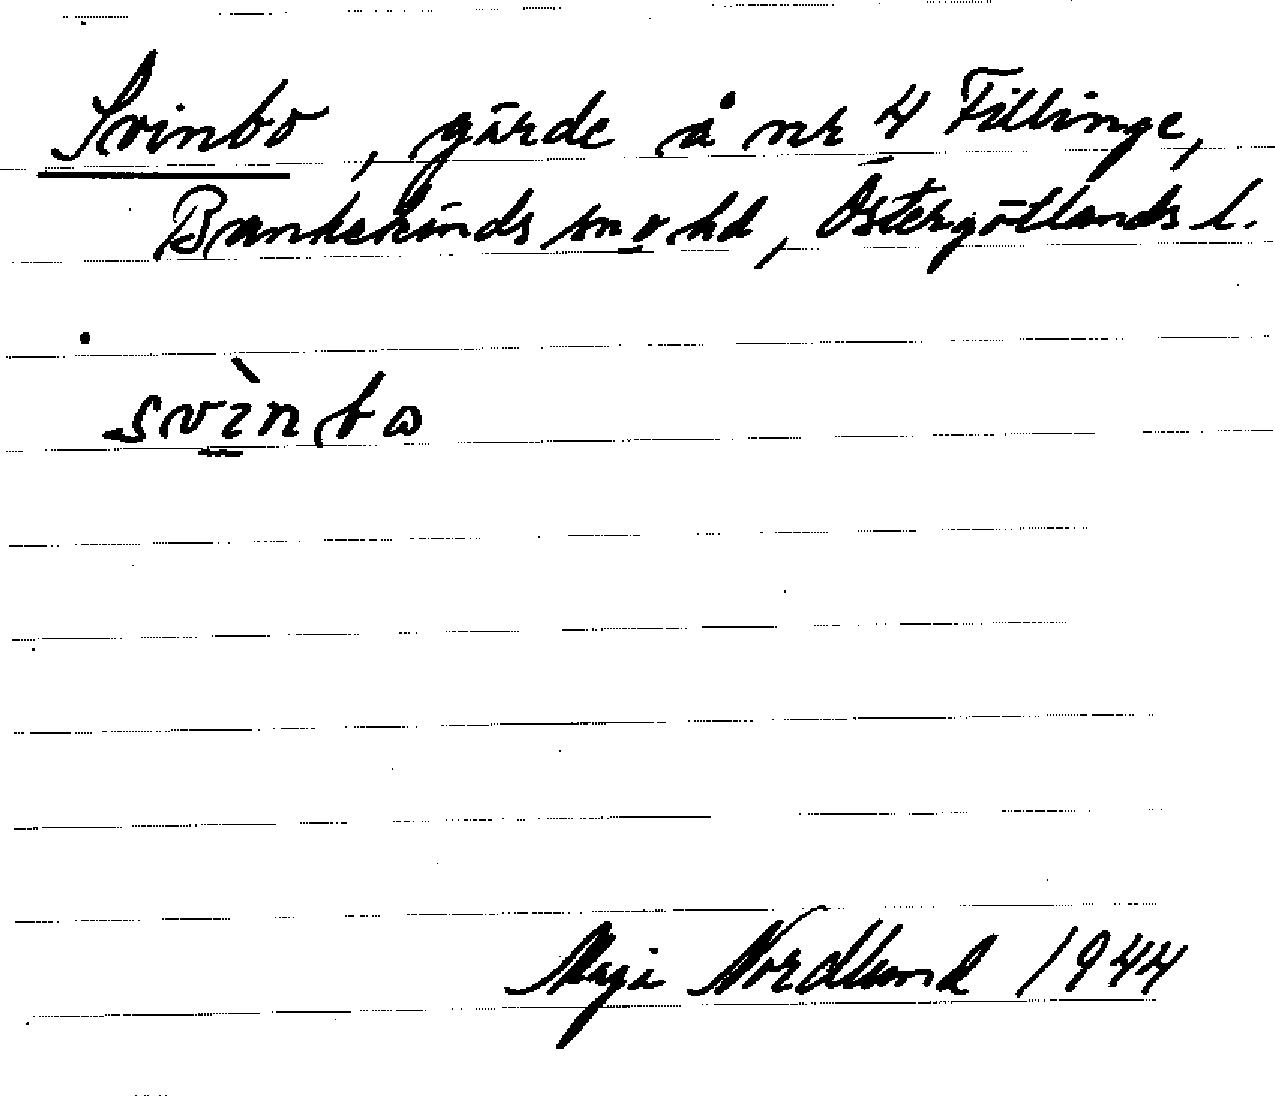 Svinbo, gärde å nr 4 Fillinge,
Bankekinds sn o. hd, Östergötlands l.
svìnbω
Maja Nordlund 1944